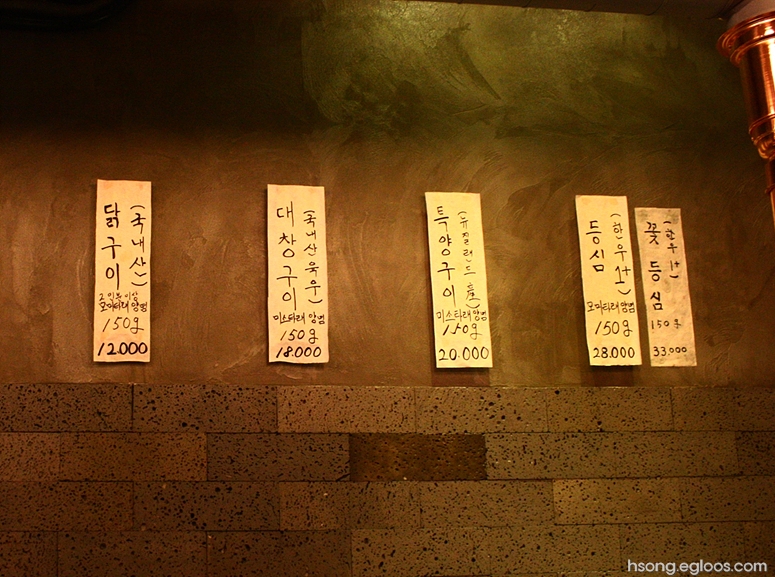 닭구이
(국내산)
2인분이상
모미타래양념
150g
12.000
대창구이
(국내산육우)
미소타래양념
150g
18.000
특양구이
(뉴질랜드産)
미소타래양념
150g
20.000
등심
(한우1+)
모미타래양념
150g
28.000
꽃등심
(한우1+)
150g
33.000
hsong.egloos.com